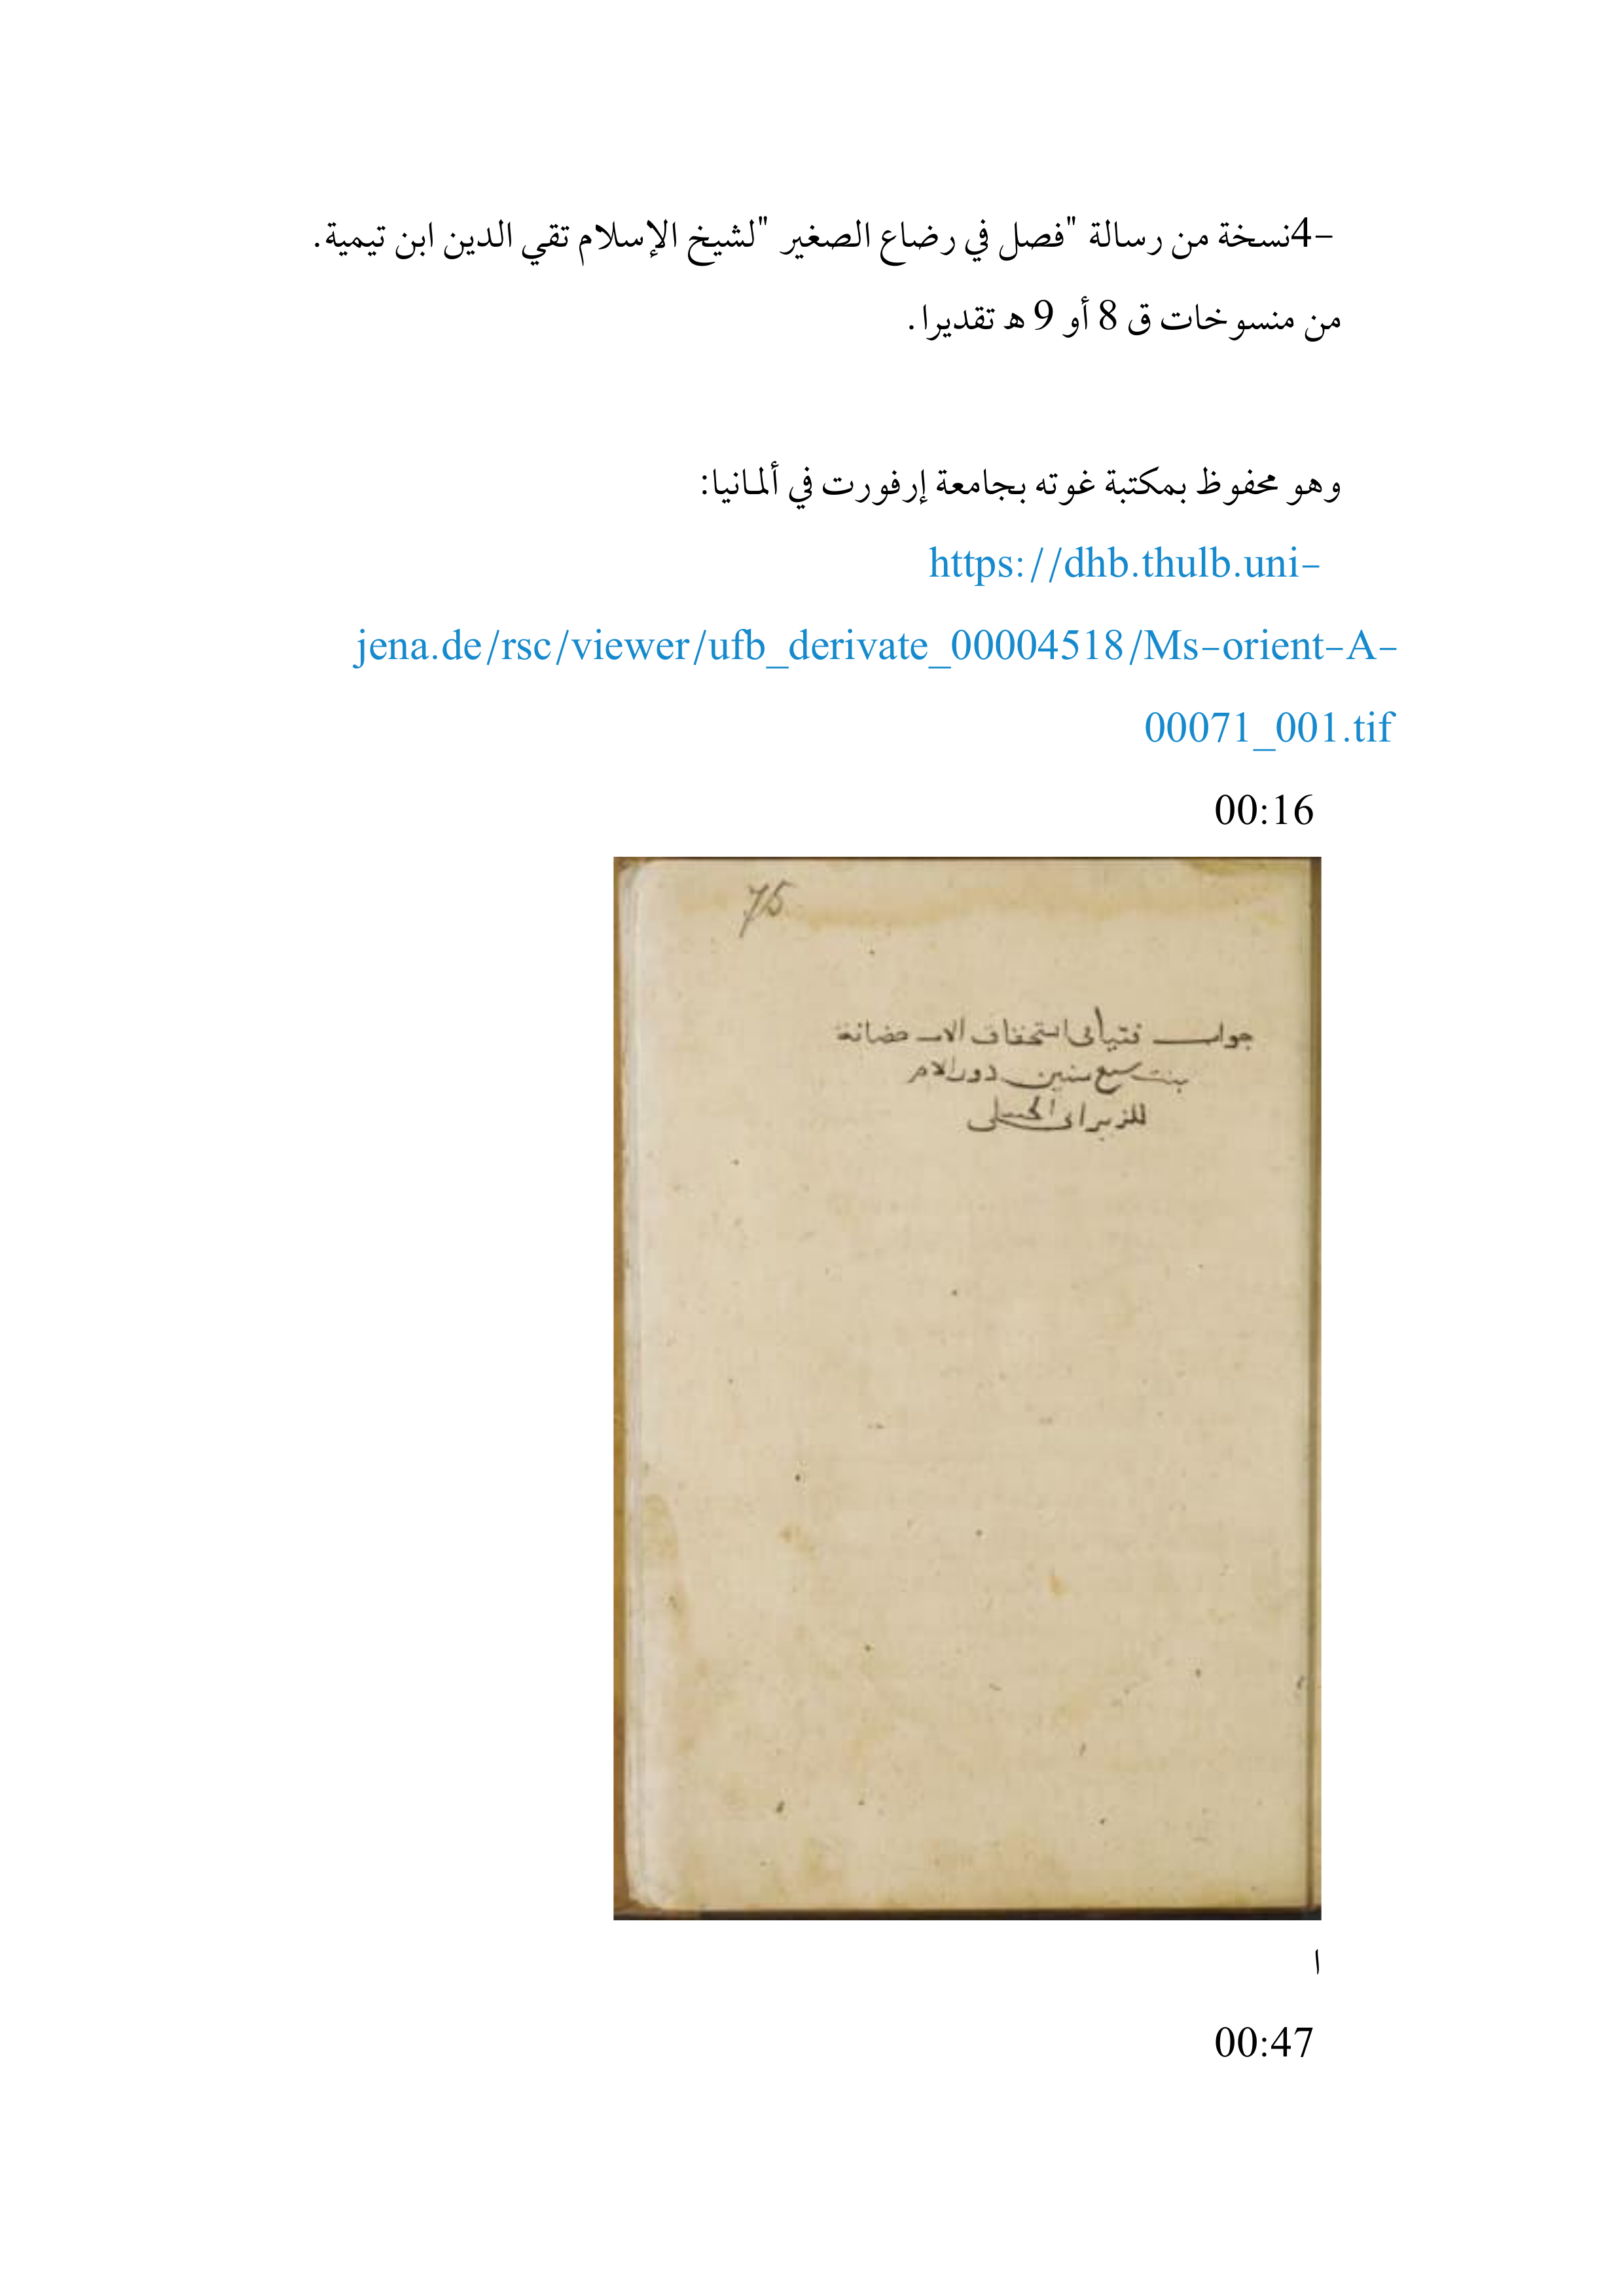 4-نسخة من رسالة "فصل في رضاع الصغير "لشيخ الإسلام تقي الدين ابن تيمية.
من منسوخات ق 8 أو 9 ه تقديرا.
وهو محفوظ بمكتبة غوته بجامعة إرفورت في ألمانيا:
https://dhb.thulb.uni-
jena.de/rsc/viewer/ufb_derivate_00004518/Ms-orient-A-
00071_001.tif
00:16
75
جواب فتيا في استحقاق الاب حضانة
بنت سبع سنين دون الام
للزريراني الحنبلي
ا
00:47